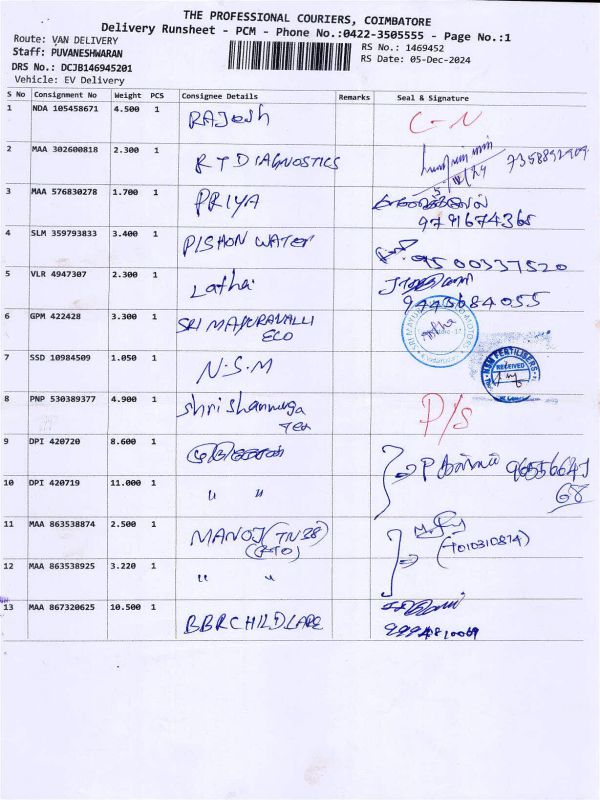 THE PROFESSIONAL COURIERS, COIMBATORE
Delivery Runsheet - PCM - Phone No.:0422-3505555 - Page No.:1
Route: VAN DELIVERY
RS No.: 1469452
Staff: PUVANESHWARAN
RS Date: 05-Dec-2024
DRS No.: DCJB146945201
Vehicle: EV Delivery
S No Consignment No Weight PCS Consignee Details Remarks Seal & Signature
1 NDA 105458671 4.500 1 RAJesh C-N
2 MAA 302600818 2.300 1 RT DIAGNOSTICS 7358892909
5/12/24
3 MAA 576830278 1.700 1 PRIYA
9791674365
4 SLM 359793833 3.400 1 PISHON WATER 9500337520
5 VLR 4947307 2.300 1 Latha
9443684055
6 GPM 422428 3.300 1 SRI MAYURAVALLI
ECO
7 SSD 10984509 1.050 1 N.S.M
NSM FERTILISERS
RECEIVED
8 PNP 530389377 4.900 1 Shri Shanmuga
Tex
P/S
9 DPI 420720 8.600 1
10 DPI 420719 11.000 1 " "
68
11 MAA 863538874 2.500 1 MANOJ (TN 38)
(RTO)
(7010310874)
12 MAA 863538925 3.220 1 " "
13 MAA 867320625 10.500 1 BBRCHILDCARE
9994810069